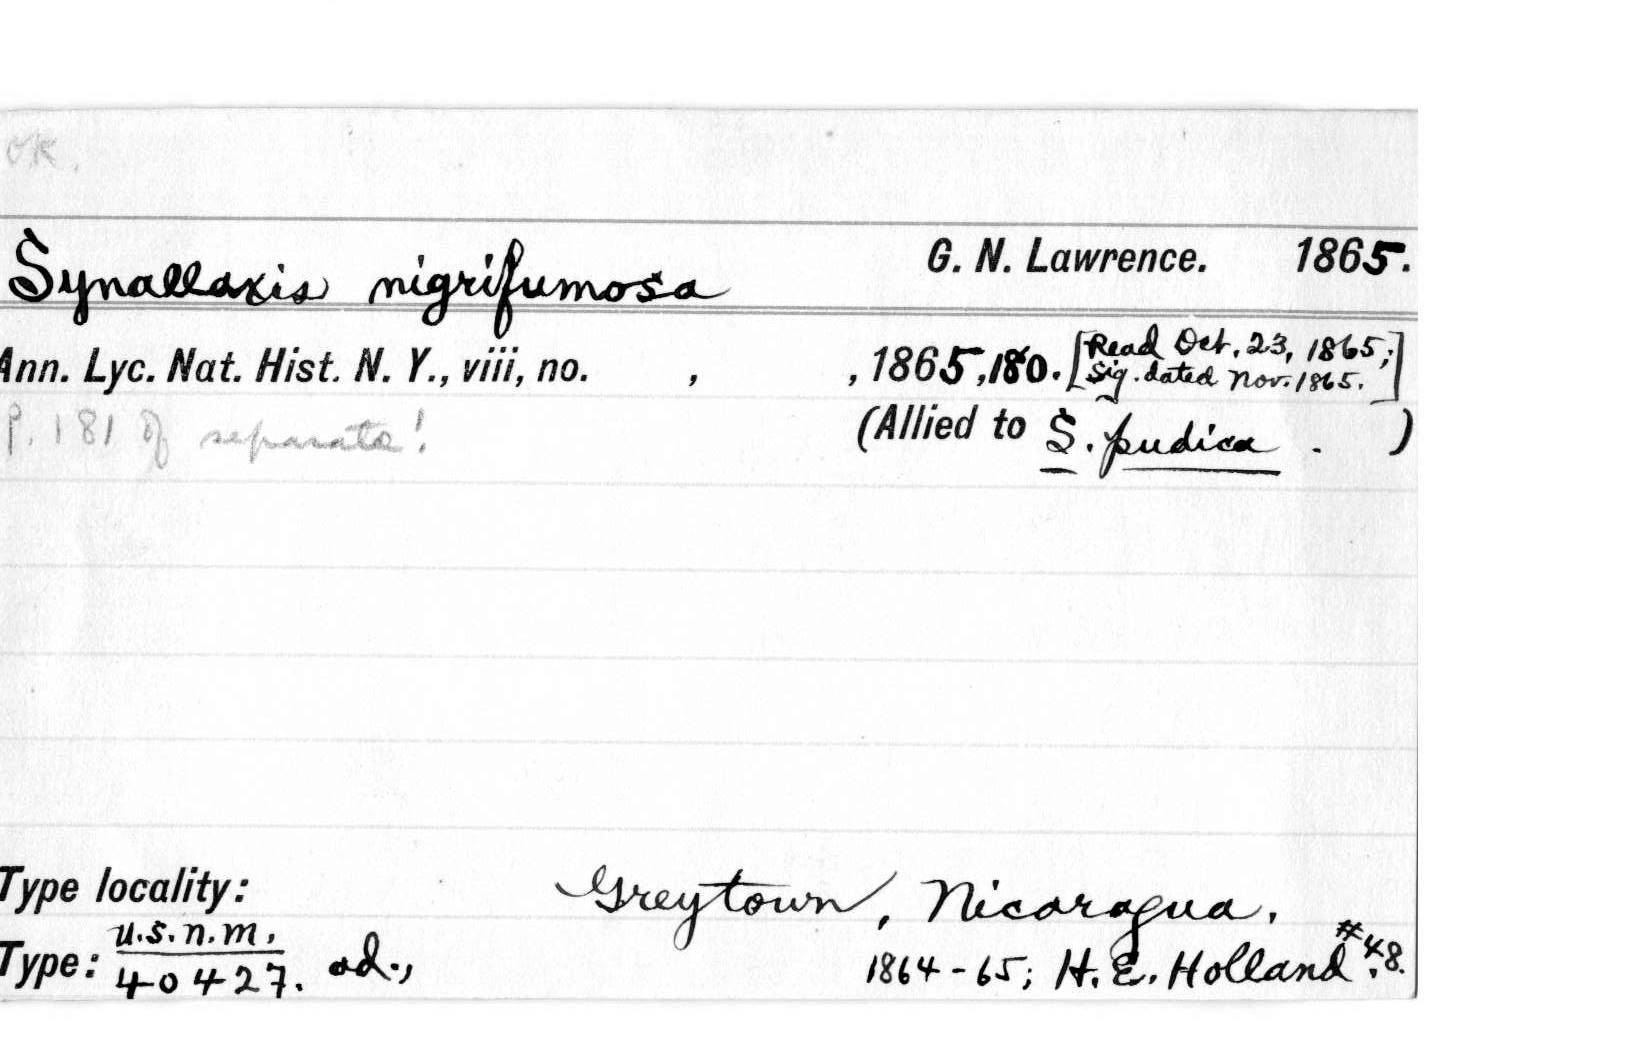 OK.
Synallaxis nigrifumosa G. N. Lawrence. 1865.
Ann. Lyc. Nat. Hist. N. Y., viii, no. , , 1865, 180. [Read Oct. 23, 1865;
Sig. dated Nov. 1865.]
p. 181 of separate! (Allied to S. pudica . )
Type locality: Greytown, Nicaragua.
Type: U.S.N.M.
40427. ad., 1864-65; H. E. Holland #48.